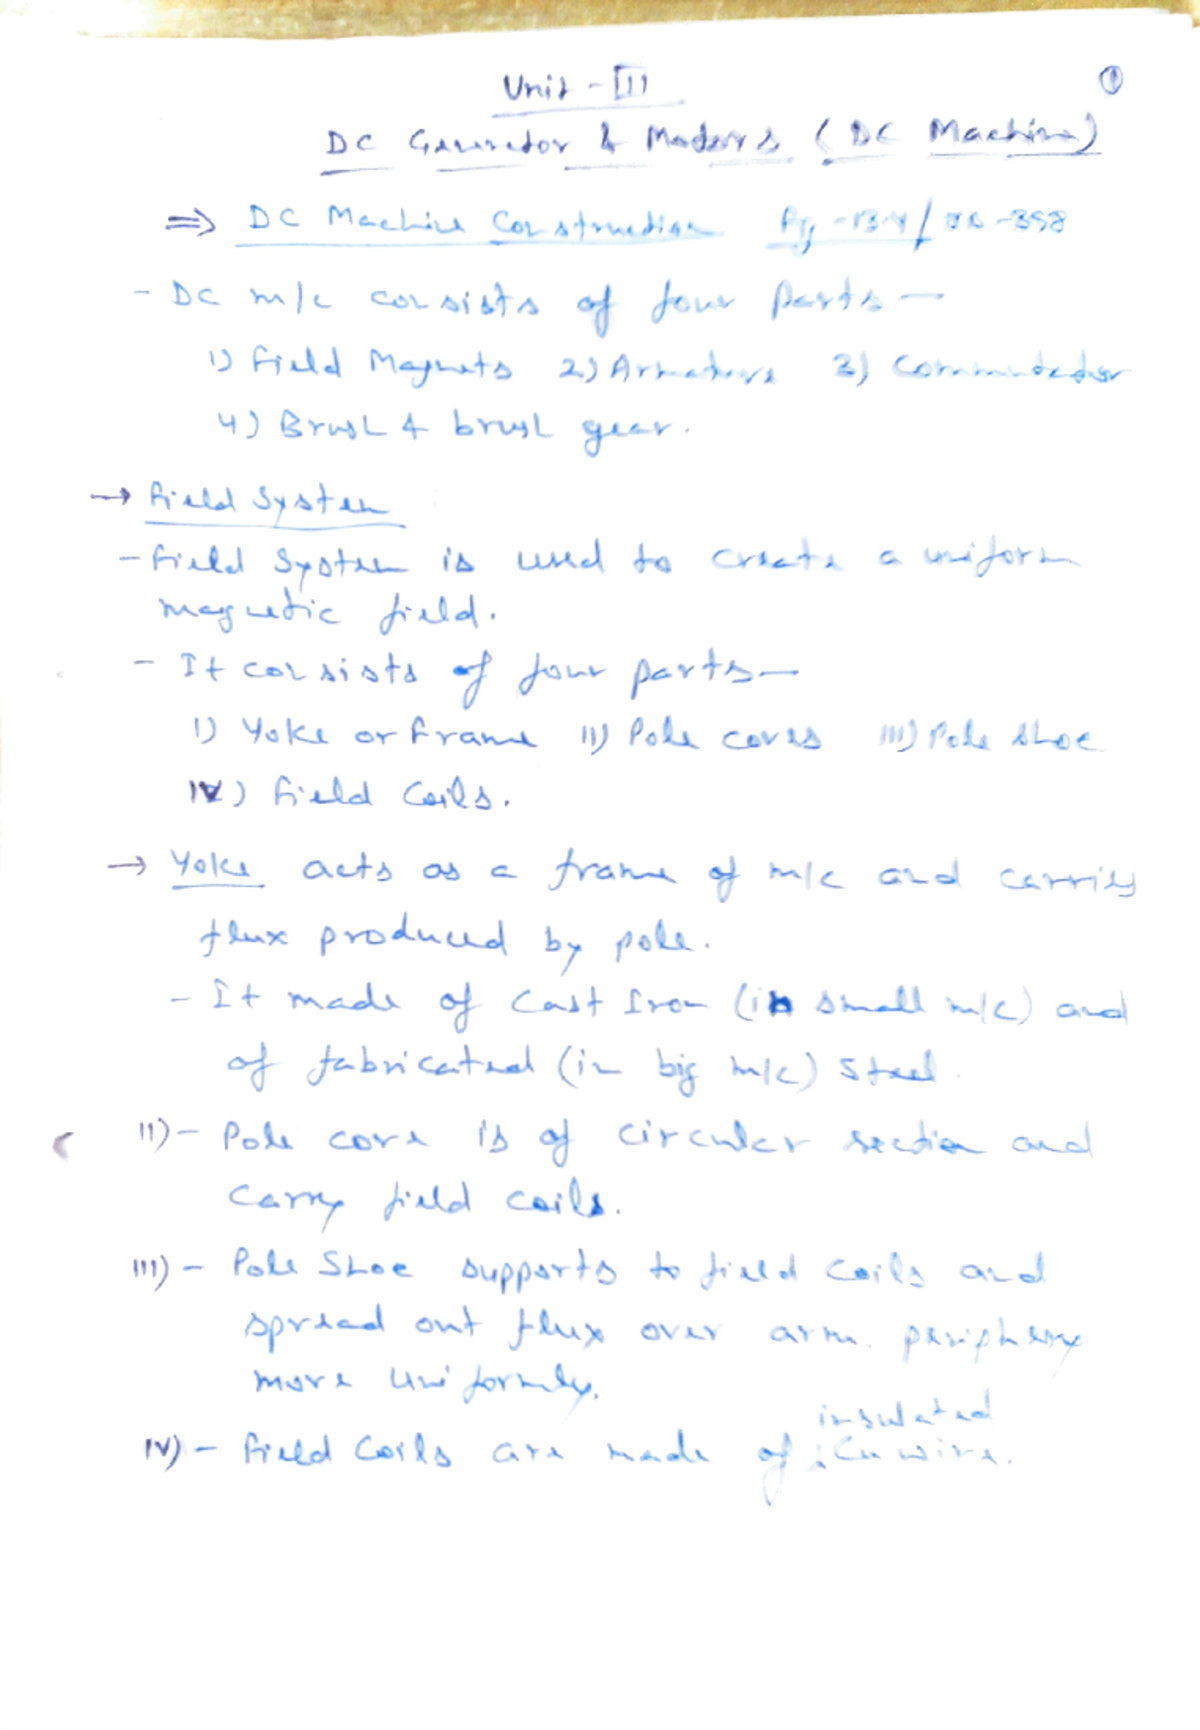 Unit - III
①
DC Generator & Motors (DC Machine)
⇒ DC Machine Construction Fig - 13.4 / -398
- DC m/c consists of four parts —
1) Field Magnets 2) Armature 3) Commutator
4) Brush & brush gear.
→ Field System
- Field System is used to create a uniform
magnetic field.
- It consists of four parts —
I) Yoke or frame II) Pole cores III) Pole shoe
IV) Field Coils.
→ Yoke acts as a frame of m/c and carries
flux produced by pole.
- It made of Cast Iron (in small m/c) and
of fabricated (in big m/c) Steel.
II) - Pole core is of circular section and
carry field coils.
III) - Pole Shoe supports to field coils and
spread out flux over arm. periphery
more uniformly.
insulated
IV) - Field Coils are made of Cu wire.